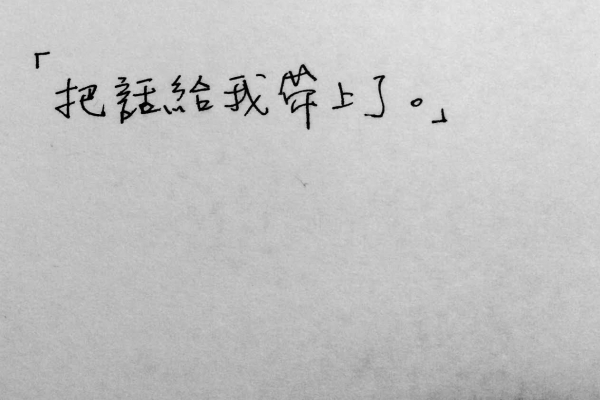 「把話給我帶上了。」